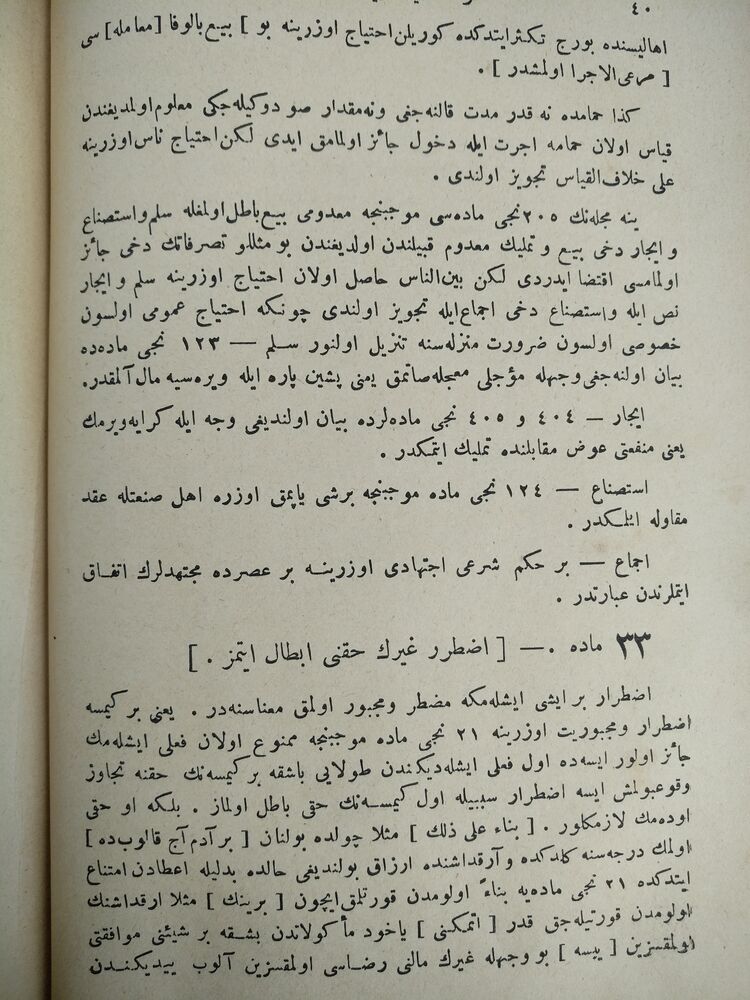 ٤٠
اهاليسنده بورج تكثر ايتدكده كوريلن احتياج اوزرينه بو ] بيع بالوفا [معامله] سى
[ مرعى الاجرا اولمشدر ] .
كذا حمامده نه قدر مدت قالنه‌جغى ونه‌مقدار صو دوكيله‌جكى معلوم اولمديغندن
قياس اولان حمامه اجرت ايله دخول جائز اولمامق ايدى لكن احتياج ناس اوزرينه
على خلاف القياس تجويز اولندى .
ينه مجله‌نك ٢٠٥ نجى ماده‌سى موجبنجه معدومى بيع باطل اولمغله سلم واستصناع
و ايجار دخى بيع و تمليك معدوم قبيلندن اولديغندن بو مثللو تصرفاتك دخى جائز
اولمامسى اقتضا ايدردى لكن بين‌الناس حاصل اولان احتياج اوزرينه سلم و ايجار
نص ايله واستصناع دخى اجماع ايله تجويز اولندى چونكه احتياج عمومى اولسون
خصوصى اولسون ضرورت منزله‌سنه تنزيل اولنور سلم — ١٢٣ نجى ماده‌ده
بيان اولنه‌جغى وجهله مؤجلى معجله صاتمق يعنى پشين پاره ايله ويره‌سيه مال آلمقدر.
ايجار — ٤٠٤ و ٤٠٥ نجى ماده‌لرده بيان اولنديغى وجه ايله كرايه ويرمك
يعنى منفعتى عوض مقابلنده تمليك ايتمكدر .
استصناع — ١٢٤ نجى ماده موجبنجه برشى ياپمق اوزره اهل صنعتله عقد
مقاوله ايلمكدر .
اجماع — بر حكم شرعى اجتهادى اوزرينه بر عصرده مجتهدلرك اتفاق
ايتملرندن عبارتدر .
٣٣ ماده .— [ اضطرر غيرك حقنى ابطال ايتمز . ]
اضطرار بر ايشى ايشله‌مكه مضطر ومجبور اولمق معناسنه‌در . يعنى بر كيمسه
اضطرار ومجبوريت اوزرينه ٢١ نجى ماده موجبنجه ممنوع اولان فعلى ايشله‌مك
جائز اولور ايسه‌ده اول فعلى ايشله‌ديكندن طولايى باشقه بر كيمسه‌نك حقنه تجاوز
وقوعبولمش ايسه اضطرار سببيله اول كيمسه‌نك حقى باطل اولماز . بلكه او حقى
اوده‌مك لازمكلور . [ بناء على ذلك ] مثلا چولده بولنان [ بر آدم آج قالوب‌ده ]
اولمك درجه‌سنه كلدكده و آرقداشنده ارزاق بولنديغى حالده بدليله اعطادن امتناع
ايتدكده ٢١ نجى ماده‌يه بناءً اولومدن قورتلمق ايچون [ برينك ] مثلا ارقداشنك
اولومدن قورتيله‌جق قدر [ اتمكنى ] ياخود مأكولاتدن بشقه بر شيئنى موافقتى
اولمقسزين [ ييسه ] بو وجهله غيرك مالنى رضاسى اولمقسزين آلوب ييديكندن